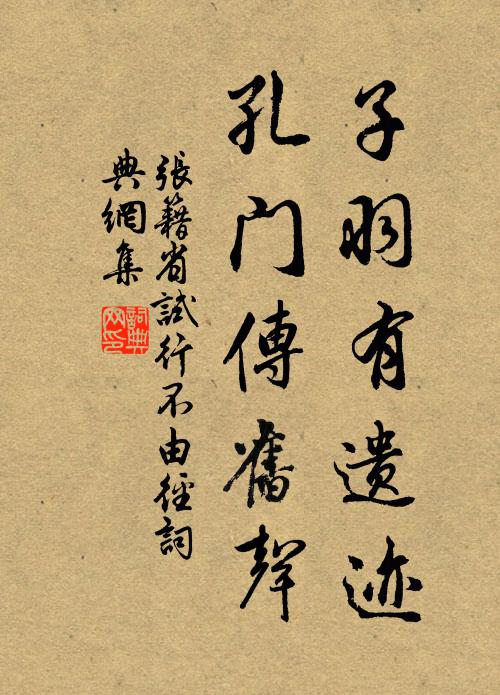 子羽有遗迹
孔门傳舊聲
張籍省試行不由徑詞
典網集
詞典网印